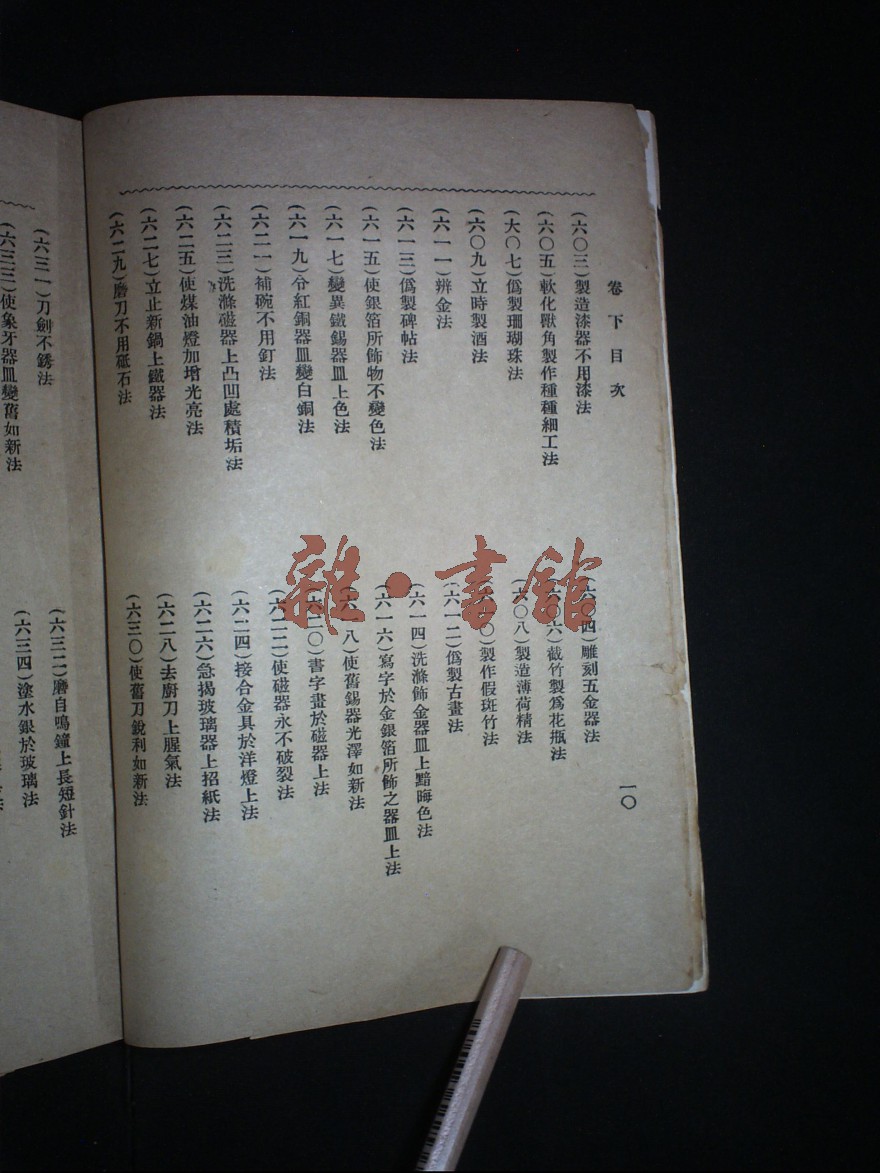 卷下目次
一〇
(六〇三)製造漆器不用漆法
(六〇四)雕刻五金器法
(六〇五)軟化獸角製作種種細工法
(六〇六)截竹製爲花瓶法
(大〇七)僞製珊瑚珠法
(六〇八)製造薄荷精法
(六〇九)立時製酒法
(六一〇)製作假斑竹法
(六一一)辨金法
(六一二)僞製古畫法
(六一三)僞製碑帖法
(六一四)洗滌飾金器皿上黯晦色法
(六一五)使銀箔所飾物不變色法
(六一六)寫字於金銀箔所飾之器皿上法
(六一七)變異鐵錫器皿上色法
(六一八)使舊錫器光澤如新法
(六一九)令紅銅器皿變白銅法
(六二〇)書字畫於磁器上法
(六二一)補碗不用釘法
(六二二)使磁器永不破裂法
(六二三)洗滌磁器上凸凹處積垢法
(六二四)接合金具於洋燈上法
(六二五)使煤油燈加增光亮法
(六二六)急揭玻璃器上招紙法
(六二七)立止新鍋上鐵器法
(六二八)去廚刀上腥氣法
(六二九)磨刀不用砥石法
(六三〇)使舊刀銳利如新法
(六三一)刀劍不銹法
(六三二)磨自鳴鐘上長短針法
(六三三)使象牙器皿變舊如新法
(六三四)塗水銀於玻璃法
雜·書館